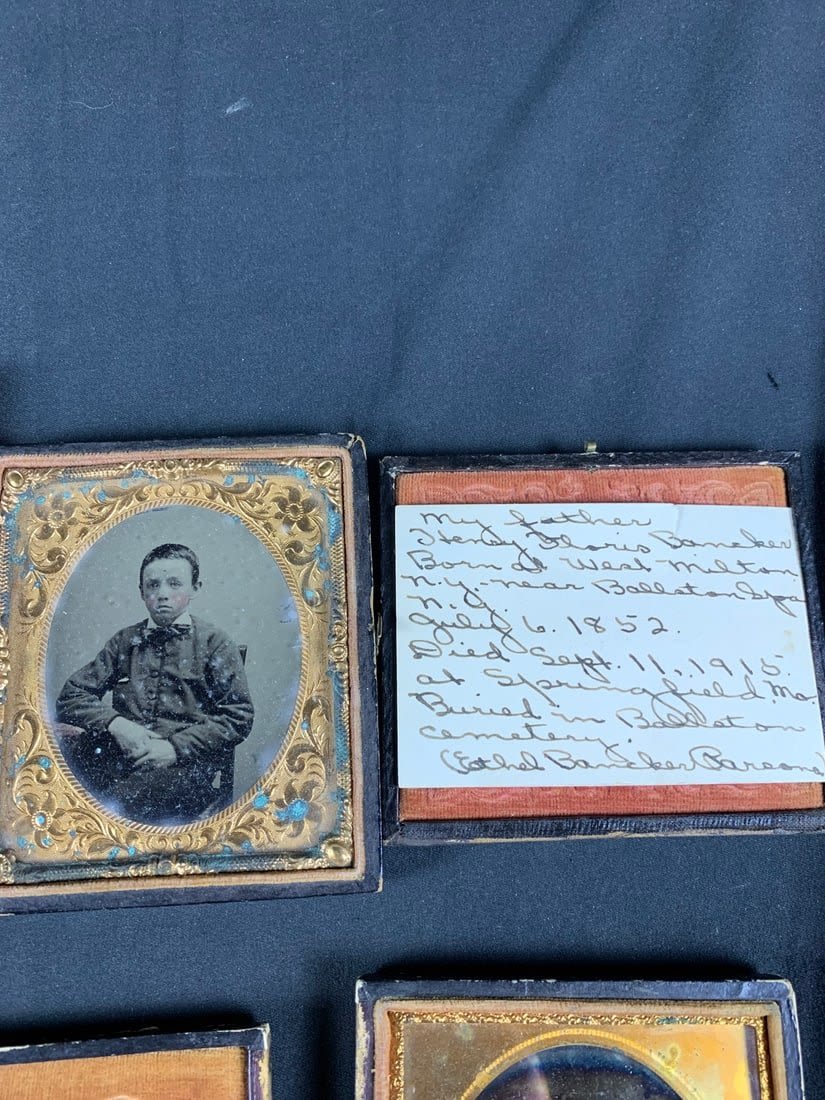 My father
Henry Floris Baneker
Born at West Milton
N.Y. near Ballston Spa
N.Y.
July 6. 1852.
Died Sept. 11, 1915.
at Springfield, Ma.
Buried in Ballston
cemetery.
(Ethel Baneker Parsons)